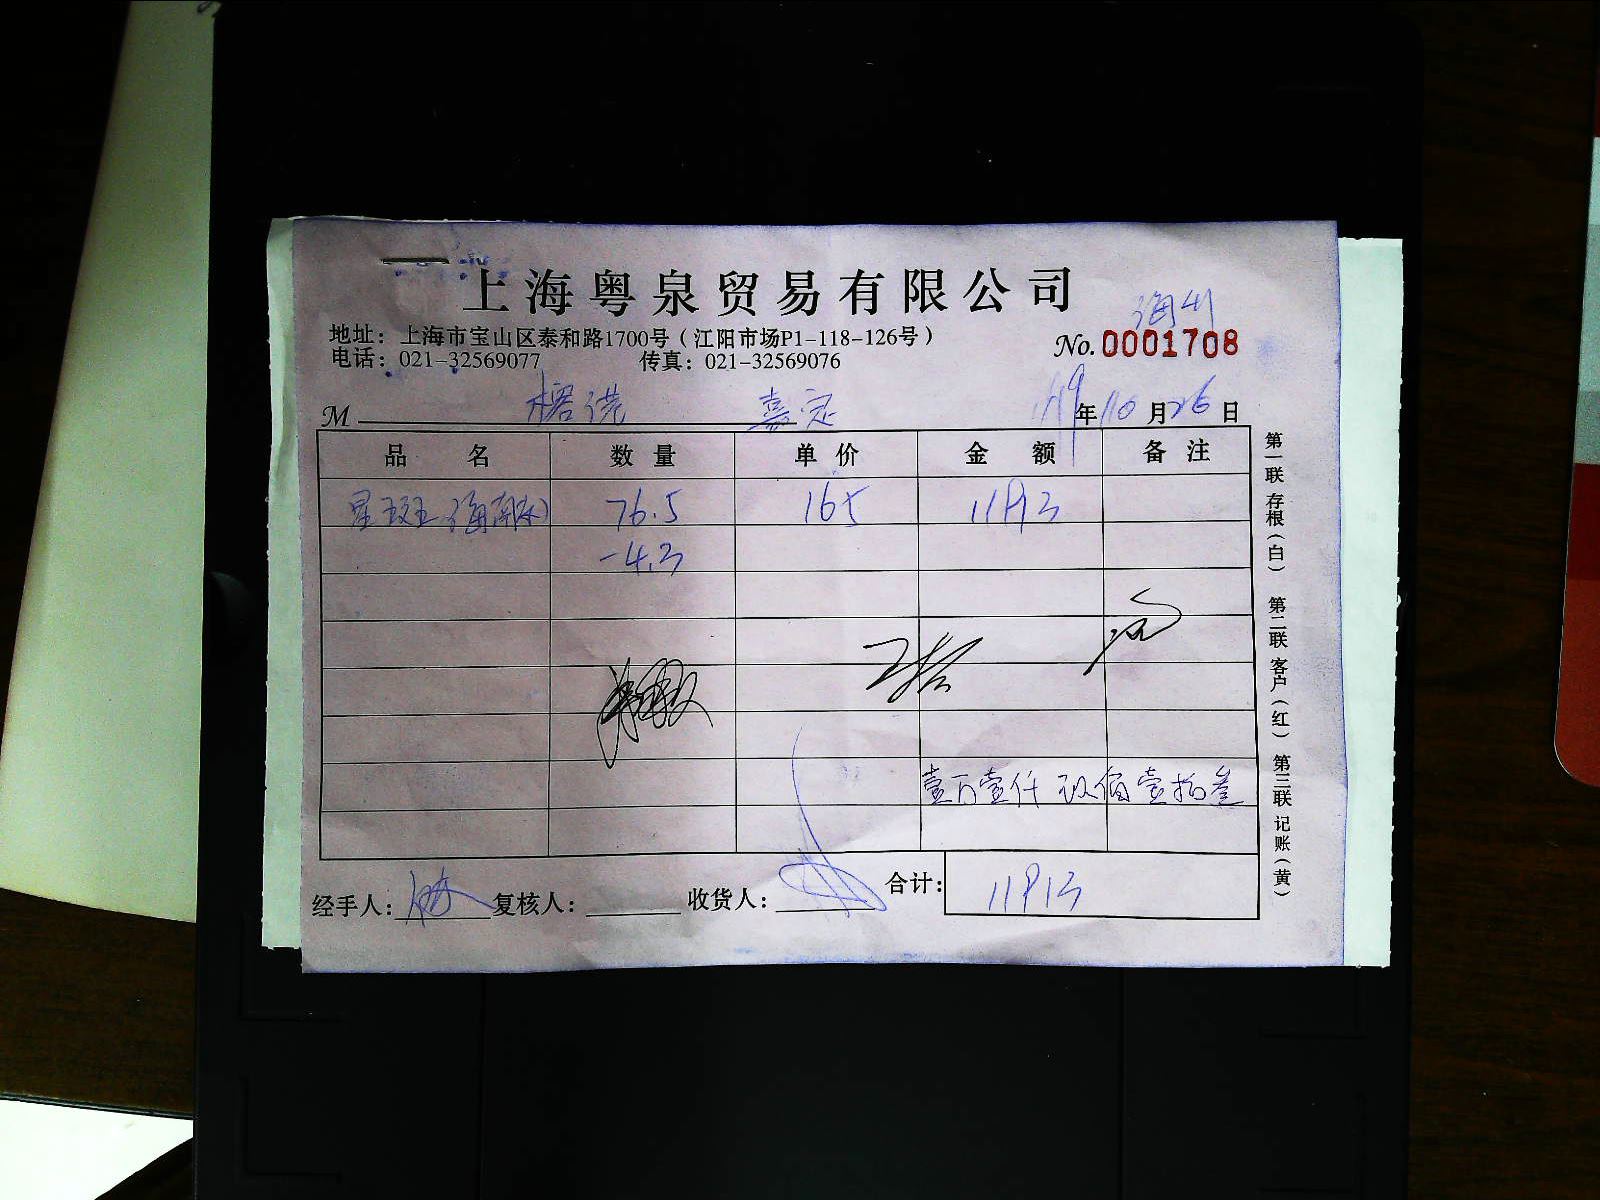 上海粤泉贸易有限公司
地址：上海市宝山区泰和路1700号（江阳市场P1-118-126号）
No. 0001708
电话：021-32569077 传真：021-32569076
M 嘉定 年10月26日
品 名 数 量 单 价 金 额 备 注
星斑 76.5 165 11913
-4.3
壹万壹仟玖佰壹拾叁
经手人： 复核人： 收货人： 合计： 11913
第一联 存根（白） 第二联 客户（红） 第三联 记账（黄）